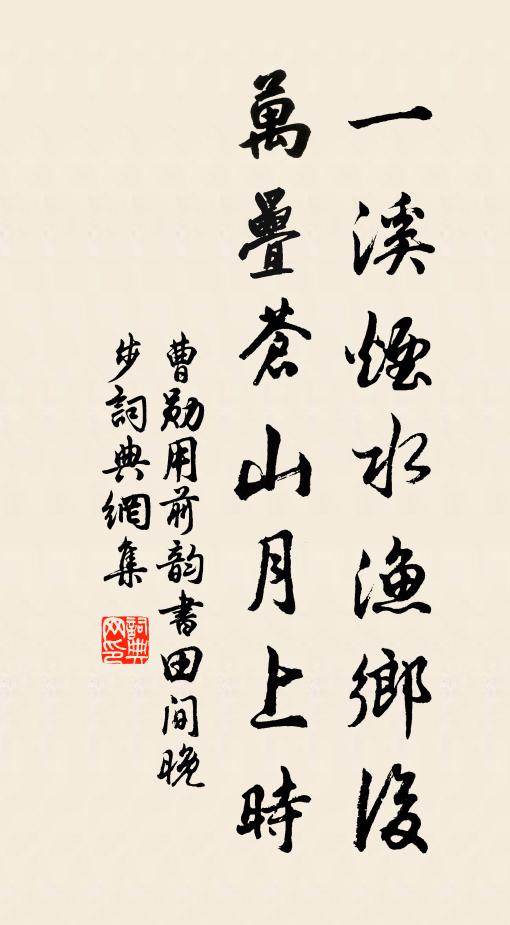 一溪煙水漁鄉後
萬疊蒼山月上時
曹勛用前韵書田間晚
步詞典網集
詞典网印